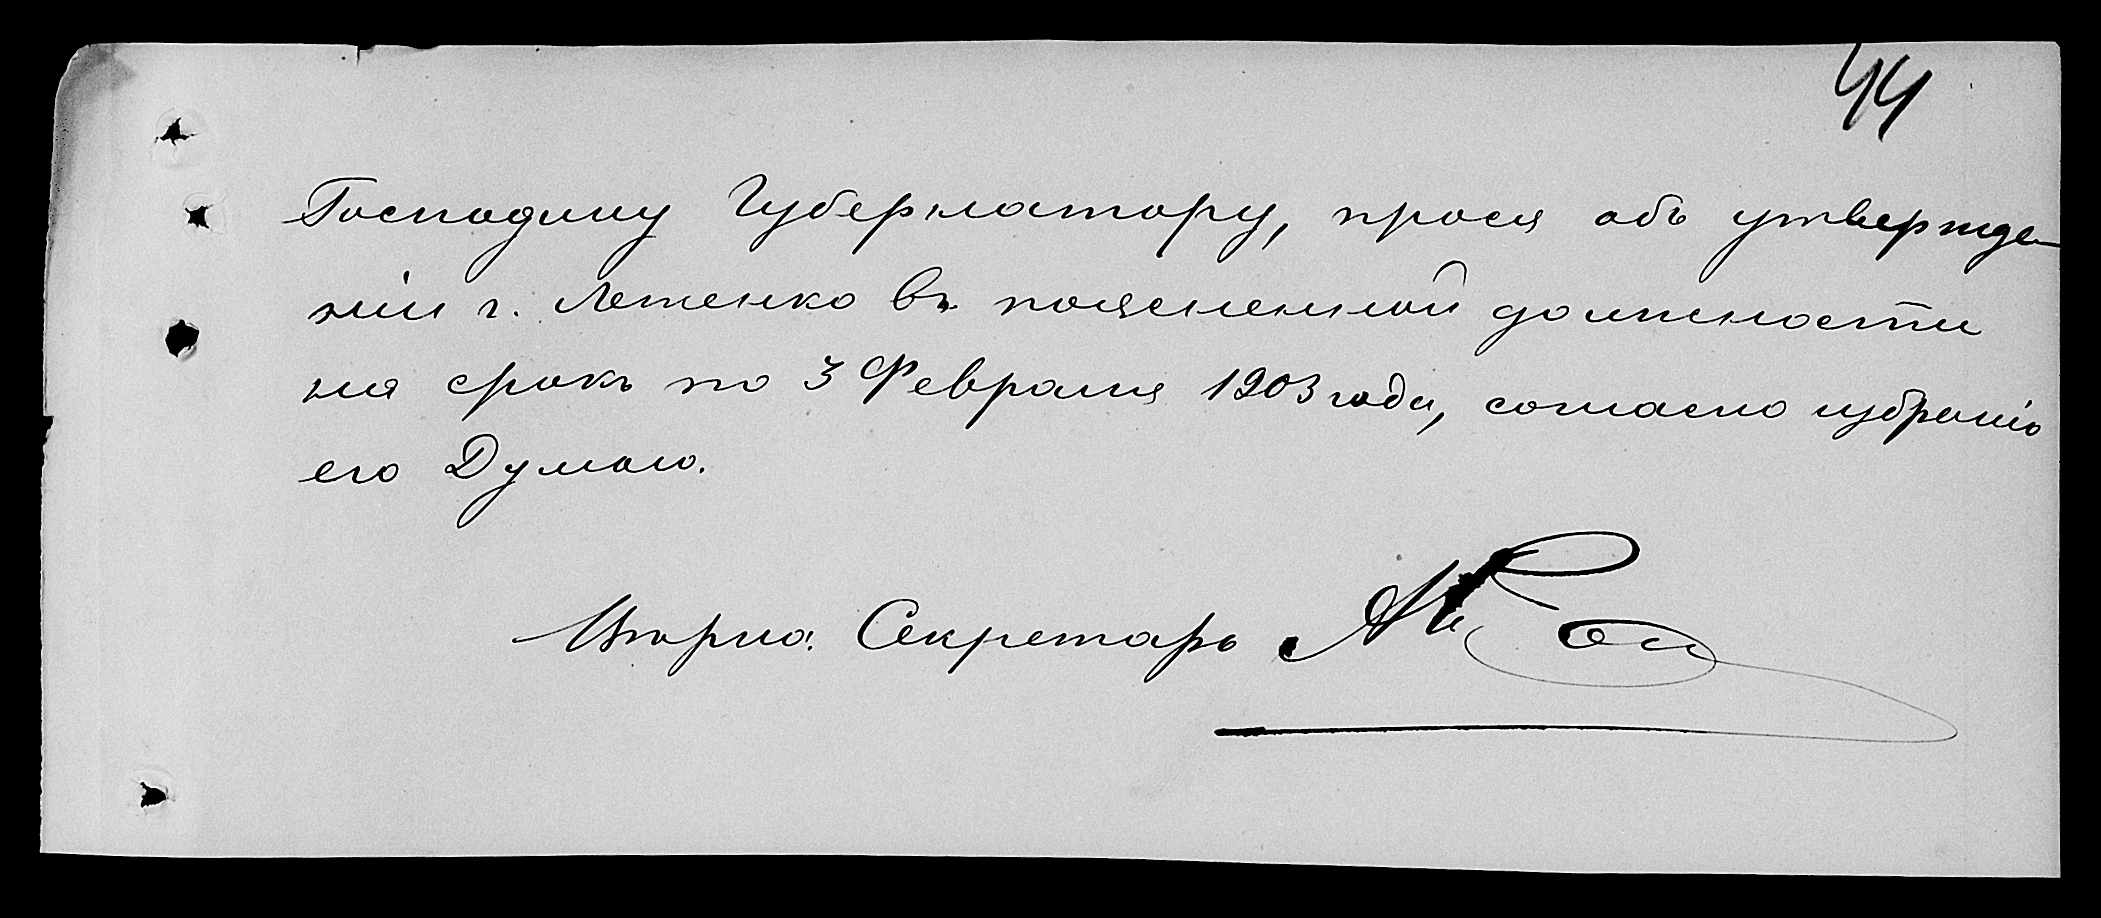 44
Господину Губернатору, прося объ утвержде-
нiи г. Лотенко въ поясненной должности
на срокъ по 3 Февраля 1903 года, согласно избранiю
его Думою.
Секретарь